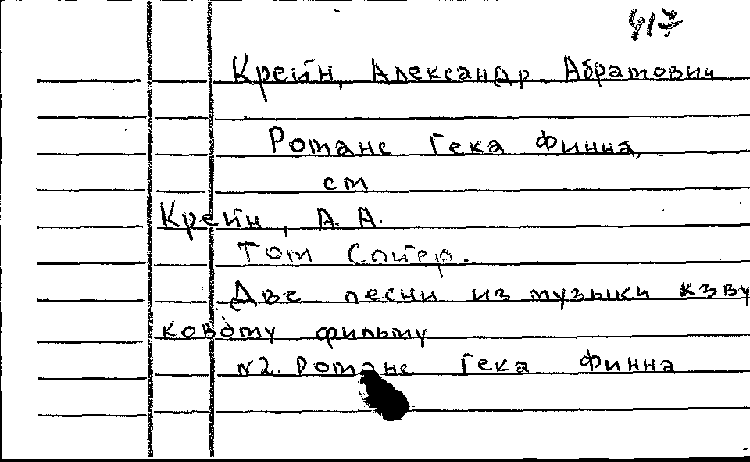 417
Крейн, Александр Абрамович
Романс Гека Финна
см
Крейн, А. А.
Том Сойер.
Две песни из музыки к зву
ковому фильму
№2. Романс Гека Финна